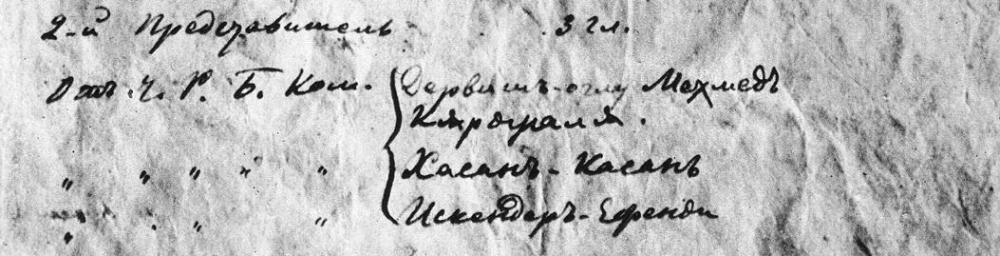 2-й Представитель 3 гл.
Отъ Ч. Р. Б. Ком. Дервишъ-оглу Мехмедъ
" " " " " Хасанъ-Касанъ
" " " " Искендеръ-Ефенди